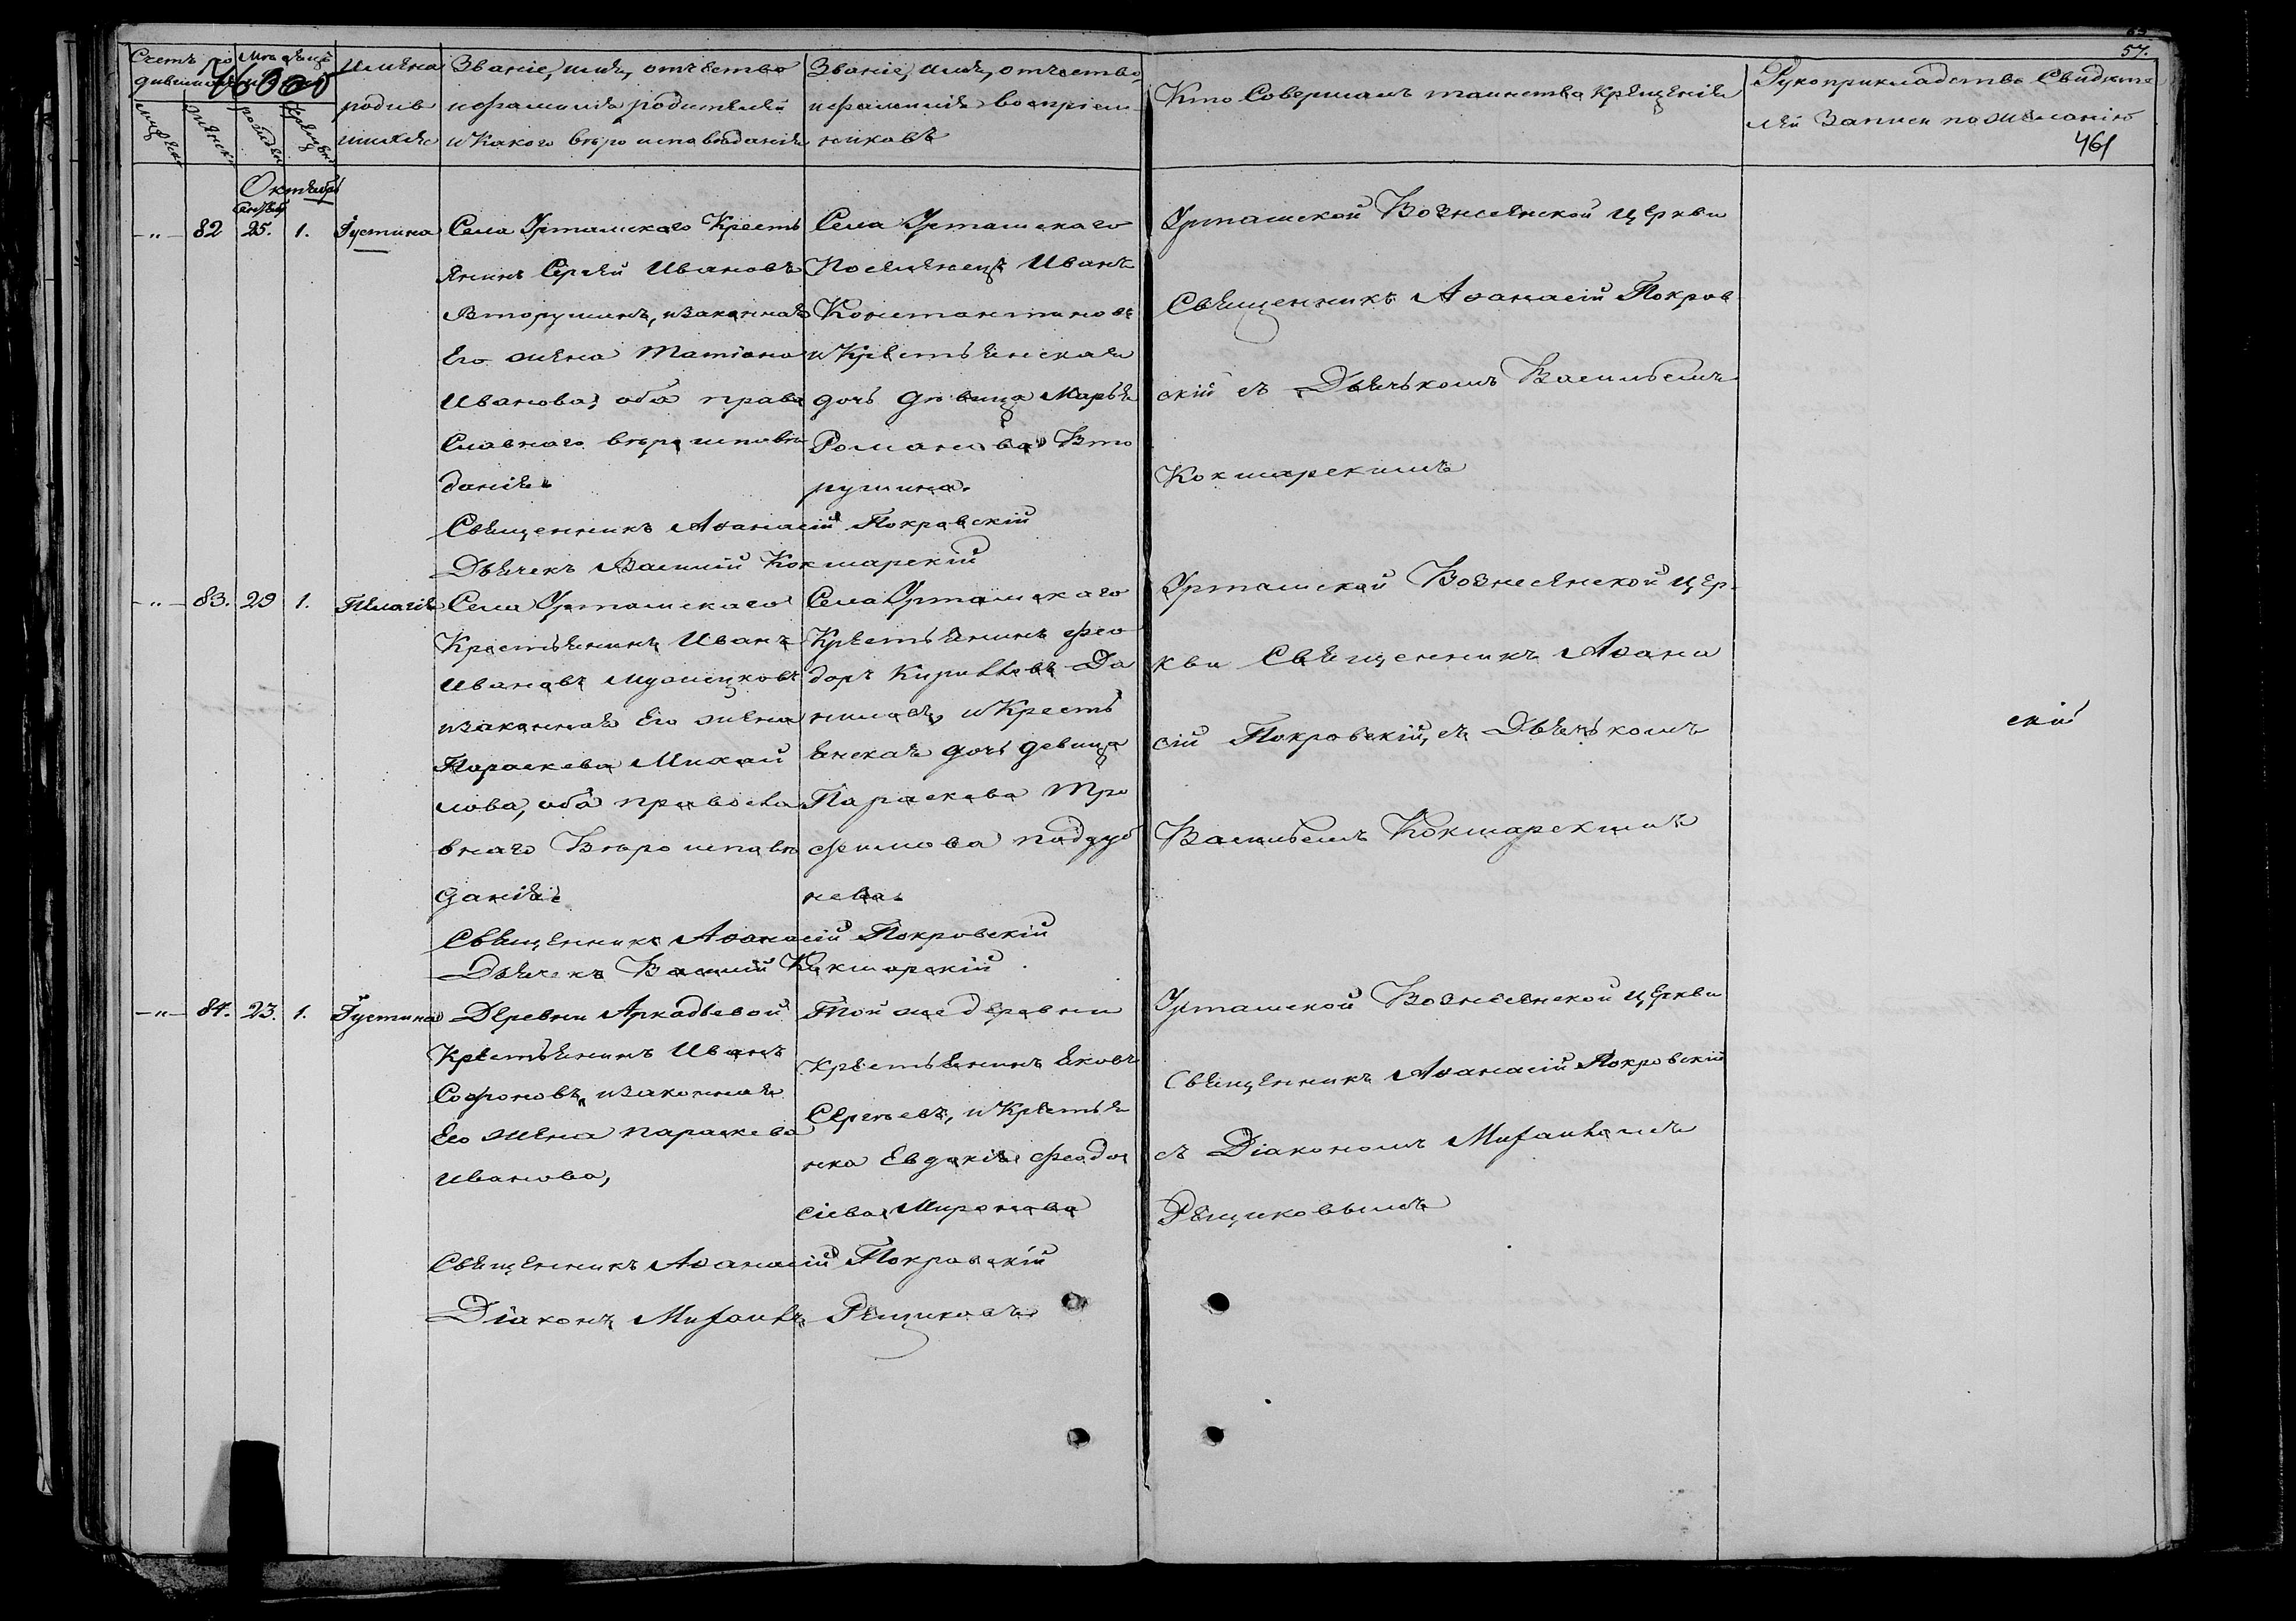 57.
Счетъ ро
дившихся
Мѣсяцъ
Имена
родив
шихся
Званіе, имя, отчество
и фамилія родителей
и какого вѣроисповѣданія
Званіе, имя, отчество,
и фамилія воспріем
никовъ
Кто совершалъ таинство крещенія
Рукоприкладство свидѣте
лей записи по желанію
461
Октябрь
82 25. 1. Іустина
Села Уртамскаго Кресть
янинъ Сергѣй Ивановъ
Вторушинъ, и законная
Его жена Татіана
Иванова, оба право
славнаго вѣроисповѣ
данія.
Села Уртамскаго
Поселенецъ Иванъ
Константиновъ
и Крестьянская
дочь дѣвица Марья
Романова Вто
рушина.
Уртамской Вознесенской церкви
Священникъ Аѳанасій Покров
скій съ Дьячькомъ Васильемъ
Кокшарскимъ
Священникъ Аѳанасій Покровскій
Дьячекъ Василій Кокшарскій
83. 29 1. Пелагія
Села Уртамскаго
Крестьянинъ Иванъ
Ивановъ
и законная Его жена
Параскева Михай
лова, оба правосла
внаго Вѣроисповѣ
данія.
Села Уртамскаго
Крестьянинъ Фео
доръ Кириловъ Да
ниловъ, и Кресть
янская дочь девица
Параскева Тро
фимова Поддуб
нева.
Уртамской Вознесенской Цер-
кви Священникъ Аѳана
сій Покровскій, съ Дьячькомъ
Васильемъ Кокшарскимъ
скій
Священникъ Аѳанасій Покровскій
Дьячекъ Василій Кокшарскій.
84. 23. 1. Іустина
Деревни Аркадьевой
Крестьянинъ Иванъ
Софроновъ, и законная
Его жена Параскева
Иванова,
Той же деревни
Крестьянинъ Яковъ
Сергѣевъ, и Крестья
нка Евдокія Феодо
сіева Миронова
Уртамской Вознесенской церкви
Священникъ Аѳанасій Покровскій
съ Діакономъ Михаиломъ
Рещиковымъ
Священникъ Аѳанасій Покровскій
Діаконъ Михаилъ Рещиковъ